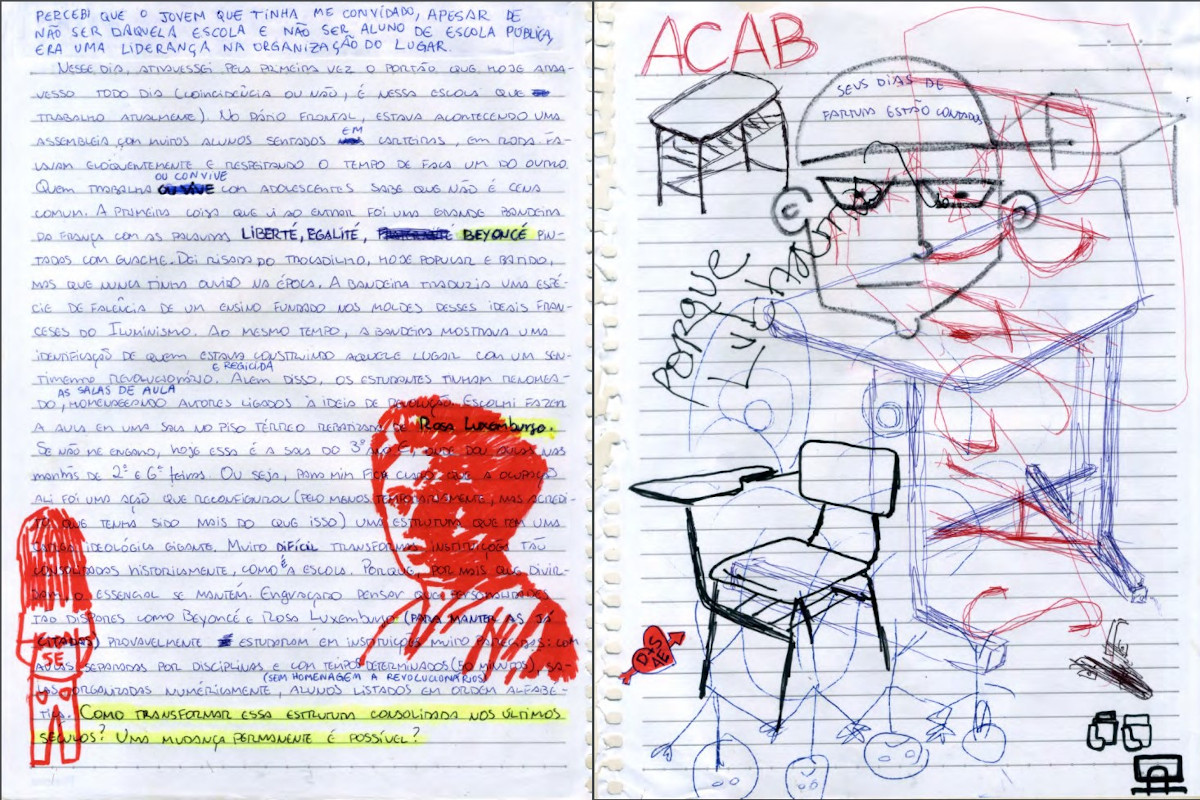 PERCEBI QUE O JOVEM QUE TINHA ME CONVIDADO, APESAR DE
NÃO SER DAQUELA ESCOLA E NÃO SER ALUNO DE ESCOLA PÚBLICA,
ERA UMA LIDERANÇA NA ORGANIZAÇÃO DO LUGAR.
NESSE DIA, ATRAVESSEI PELA PRIMEIRA VEZ O PORTÃO QUE HOJE ATRA-
VESSO TODO DIA (COINCIDÊNCIA OU NÃO, É NESSA ESCOLA QUE
TRABALHO ATUALMENTE). NO PÁTIO FRONTAL, ESTAVA ACONTECENDO UMA
ASSEMBLEIA COM MUITOS ALUNOS SENTADOS EM CARTEIRAS, EM RODA FA-
LAVAM ELOQUENTEMENTE E RESPEITANDO O TEMPO DE FALA UM DO OUTRO.
QUEM TRABALHA OU CONVIVE COM ADOLESCENTES SABE QUE NÃO É CENA
COMUM. A PRIMEIRA COISA QUE VI AO ENTRAR FOI UMA GRANDE BANDEIRA
DA FRANÇA COM AS PALAVRAS LIBERTÉ, EGALITÉ, BEYONCÉ PIN-
TADAS COM GUACHE. DEI RISADA DO TROCADILHO, HOJE POPULAR E BATIDO,
MAS QUE NUNCA TINHA OUVIDO NA ÉPOCA. A BANDEIRA TRADUZIA UMA ESPÉ-
CIE DE FALÊNCIA DE UM ENSINO FUNDADO NOS MOLDES DESSES IDEAIS FRAN-
CESES DO ILUMINISMO. AO MESMO TEMPO, A BANDEIRA MOSTRAVA UMA
IDENTIFICAÇÃO DE QUEM ESTAVA CONSTRUINDO AQUELE LUGAR COM UM SEN-
TIMENTO REVOLUCIONÁRIO E REGICIDA. ALÉM DISSO, OS ESTUDANTES TINHAM RENOMEA-
DO AS SALAS DE AULA, HOMENAGEANDO AUTORES LIGADOS À IDEIA DE REVOLUÇÃO. ESCOLHI FAZER
A AULA EM UMA SALA NO PISO TÉRREO REBATIZADA DE ROSA LUXEMBURGO.
SE NÃO ME ENGANO, HOJE ESSA É A SALA DO 3º ANO E, ONDE DOU AULAS NAS
MANHÃS DE 2ª E 6ª FEIRAS. OU SEJA, PARA MIM FICA CLARO QUE A OCUPAÇÃO
ALI FOI UMA AÇÃO QUE RECONFIGUROU (PELO MENOS TEMPORARIAMENTE, MAS ACREDI-
TO QUE TENHA SIDO MAIS DO QUE ISSO) UMA ESTRUTURA QUE TEM UMA
CARGA IDEOLÓGICA GIGANTE. MUITO DIFÍCIL TRANSFORMAR INSTITUIÇÕES TÃO
CONSOLIDADAS HISTORICAMENTE, COMO É A ESCOLA. PORQUE, POR MAIS QUE DIVIR-
JAM, O ESSENCIAL SE MANTÉM. ENGRAÇADO PENSAR QUE PERSONALIDADES
TÃO DÍSPARES COMO BEYONCÉ E ROSA LUXEMBURGO (PARA MANTER AS JÁ
CITADAS) PROVAVELMENTE ESTUDARAM EM INSTITUIÇÕES MUITO PARECIDAS: COM
AULAS SEPARADAS POR DISCIPLINAS E COM TEMPOS DETERMINADOS (50 MINUTOS), SA-
LAS ORGANIZADAS NUMERICAMENTE (SEM HOMENAGEM A REVOLUCIONÁRIOS), ALUNOS LISTADOS EM ORDEM ALFABÉ-
TICA. COMO TRANSFORMAR ESSA ESTRUTURA CONSOLIDADA NOS ÚLTIMOS
SÉCULOS? UMA MUDANÇA PERMANENTE É POSSÍVEL?
SE
ACAB
SEUS DIAS DE
FARTURA ESTÃO CONTADOS
PORQUE
LUTAMOS
D+S
AE